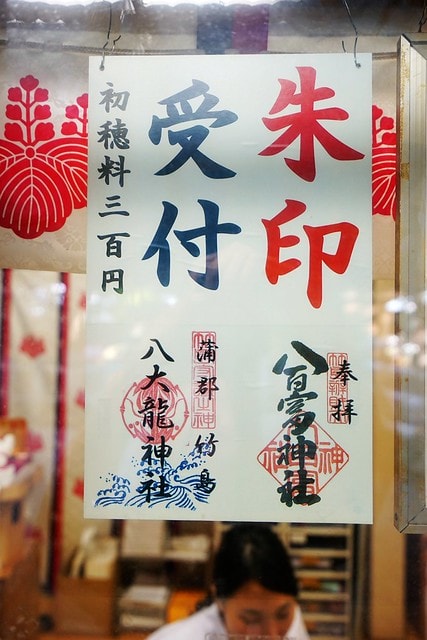 朱印
受付
初穂料三百円
奉拝
八百富神社
蒲郡 竹島
八大龍神社